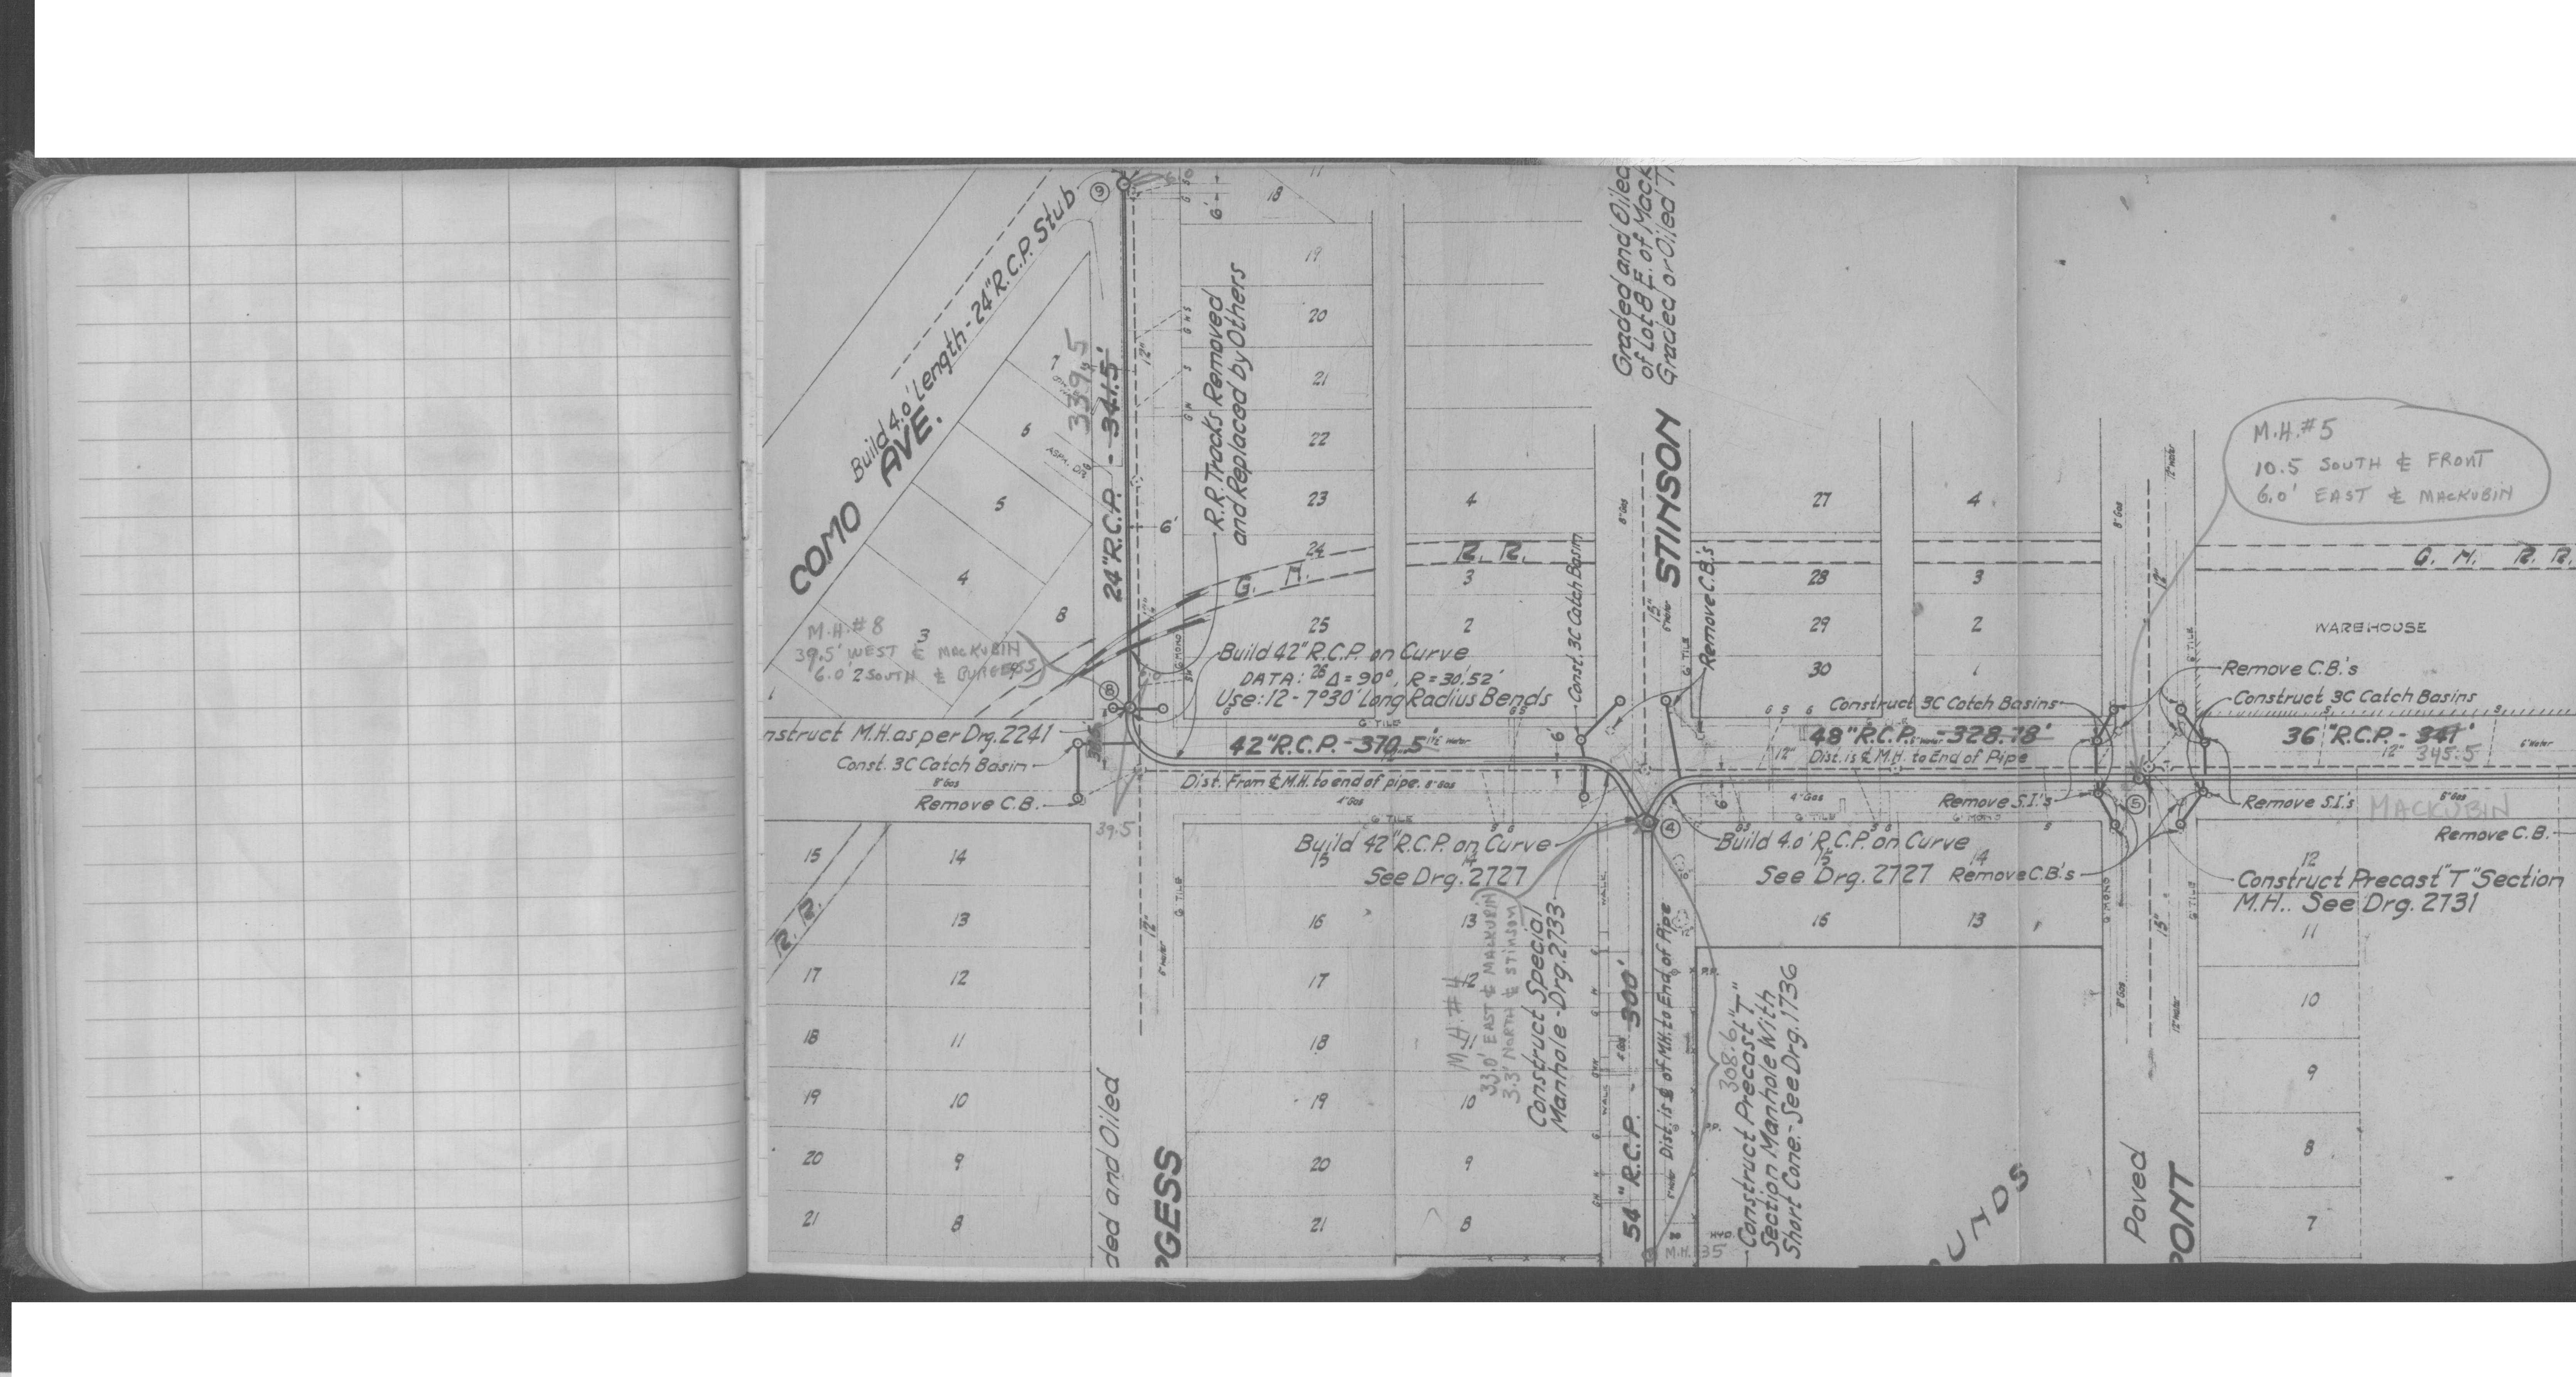 COMO AVE.
Build 4.0' Length - 24" R.C.P. Stub
9
6'
18
19
20
21
22
23
24
25
26
339.5
24" R.C.P. - 341.5'
12"
R.R. Tracks Removed
and Replaced by Others
7
6
5
4
3
8
1
2
ASPH. DR.
6'
G. N. R. R.
M.H. #8
39.5' WEST ₵ MACKUBIN
6.0' SOUTH ₵ BURGESS
8
Build 42" R.C.P. on Curve
DATA: Δ = 90°, R = 30.52'
Use: 12 - 7°30' Long Radius Bends
nstruct M.H. as per Drg. 2241
Const. 3C Catch Basin
8" Gas
Remove C.B.
39.5
42" R.C.P. - 370.5'
Dist. From ₵ M.H. to end of pipe.
8" Gas
4" Gas
G TILE
Build 42" R.C.P. on Curve
See Drg. 2727
R. R.
15
14
13
12
11
10
9
8
17
18
19
20
21
ded and Oiled
RGESS
12"
6" Water
G TILE
15
14
16
13
17
12
18
11
19
10
20
9
21
8
M.H. #4
33.0' EAST ₵ MACKUBIN
3.3' NORTH ₵ STINSON
Construct Special
Manhole - Drg. 2733
Graded and Oiled
of Lot 8 E. of Mack
Graded or Oiled
STINSON
4
3
2
Const. 3C Catch Basin
8" Gas
15"
6" Water
G TILE
Remove C.B.'s
6'
4
54" R.C.P. - 300'
Dist. is ₵ of M.H. to End of Pipe
WALK
WALK
308.6'
Construct Precast "T"
Section Manhole With
Short Cone. - See Drg. 1736
HYD.
M.H. 35
P.P.
P.P.
27
28
29
30
4
3
2
1
Construct 3C Catch Basins
48" R.C.P. - 328.78'
12"
Dist. is ₵ M.H. to End of Pipe
6'
4" Gas
G TILE
G MONO
Remove S.I.'s
Build 4.0' R.C.P. on Curve
See Drg. 2727
Remove C.B.'s
15
14
16
13
UNDS
Paved
PONT
8" Gas
12" Water
12"
15"
8" Gas
12" Water
G MONO
G TILE
G TILE
5
M.H. #5
10.5 SOUTH ₵ FRONT
6.0' EAST ₵ MACKUBIN
G. N. R. R.
WAREHOUSE
Remove C.B.'s
Construct 3C Catch Basins
36" R.C.P. - 341'
345.5
12"
6" Water
Remove S.I.'s
MACKUBIN
8" Gas
Remove C.B.
Construct Precast "T" Section
M.H.. See Drg. 2731
12
11
10
9
8
7